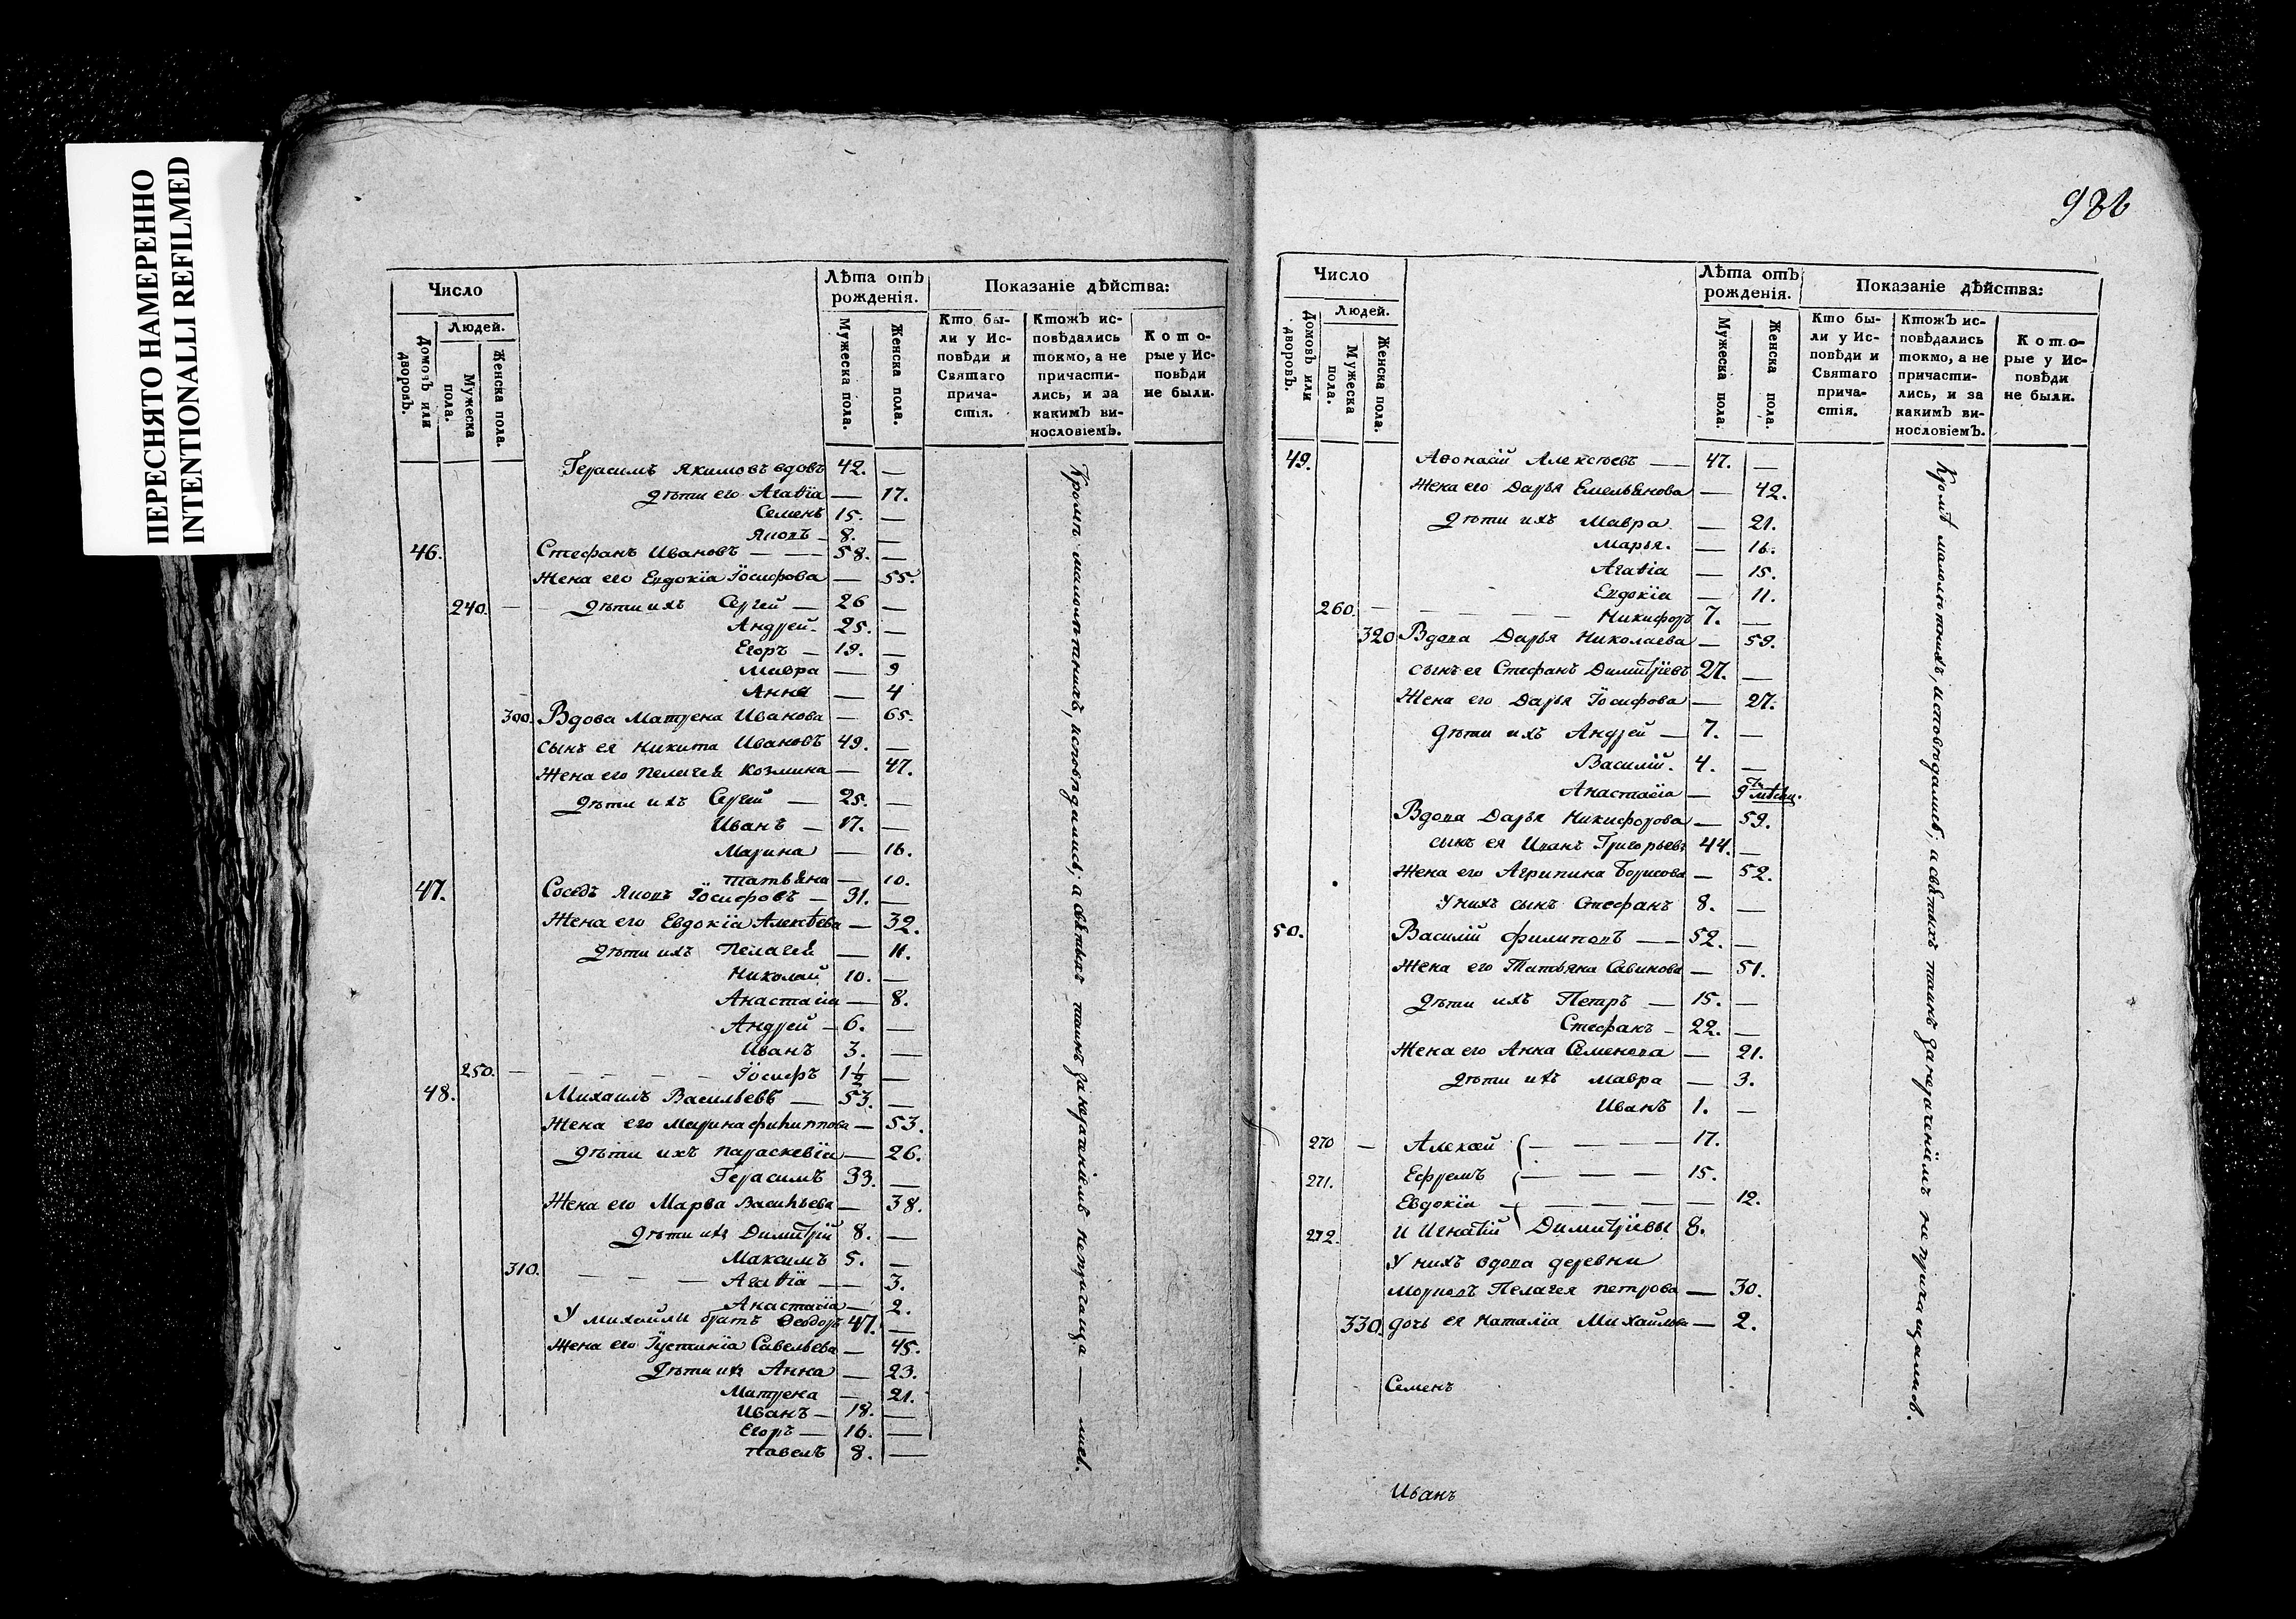 ПЕРЕСНЯТО НАМЕРЕННО
INTENTIONALLI REFILMED
Число
Людей.
Домовъ или дворовъ.
Мужеска пола.
Женска пола.
Лѣта отъ рожденія.
Мужеска пола.
Женска пола.
Показаніе дѣйства:
Кто бы-
ли у Ис-
повѣди и
Святаго
прича-
стія.
Ктожъ ис-
повѣдались
токмо, а не
причасти-
лись, и за
какимъ ви-
нословіемъ.
Кото-
рые у Ис-
повѣди
не были.
Герасимъ Якимовъ вдовъ 42. —
дѣти его Агаѳіа — 17.
Семенъ 15. —
Яковъ — 8. —
46. Стефанъ Ивановъ — — 58. —
Жена его Евдокіа Іосифова — 55.
240. — дѣти ихъ Сергей — 26 —
Андрей — 25. —
Егоръ — 19. —
Мавра — 9
Анна — 4
300. Вдова Матрена Иванова — 65.
сынъ ея Никита Ивановъ 49. —
Жена его Пелагея Козмина — 47.
дѣти ихъ Сергей — 25. —
Иванъ — 17. —
Марина — 16.
Татьяна — 10.
47. Соседъ Яковъ Іосифовъ — 31. —
Жена его Евдокіа Алекѣева — 32.
дѣти ихъ Пелагея — 11.
Николай 10. —
Анастасіа — 8.
Андрей — 6. —
Иванъ 3. —
250. — — — — — Іосифъ 1½ —
48. Михаилъ Васильевъ — 53. —
Жена его Марина Филиппова — 53.
дѣти ихъ Параскевіа — 26.
Герасимъ 33. —
Жена его Марѳа Васильева — 38.
дѣти ихъ Димитрій 8. —
Максимъ 5. —
310. — — — Агаѳіа — — 3.
Анастасіа — 2.
У Михайли братъ Ѳеодоръ 47. —
Жена его Іустиніа Савельева — 45.
дѣти ихъ Анна — 23.
Матрена — 21.
Иванъ — 18. —
Егоръ — 16. —
Павелъ 8. —
Кромѣ малолѣтнихъ, исповѣдались, а святыхъ таинъ
986
Число
Людей.
Домовъ или дворовъ.
Мужеска пола.
Женска пола.
Лѣта отъ рожденія.
Мужеска пола.
Женска пола.
Показаніе дѣйства:
Кто бы-
ли у Ис-
повѣди и
Святаго
прича-
стія.
Ктожъ ис-
повѣдались
токмо, а не
причасти-
лись, и за
какимъ ви-
нословіемъ.
Кото-
рые у Ис-
повѣди
не были.
49. Аѳонасій Алексѣевъ — 47. —
Жена его Дарья Емельянова — 42.
дѣти ихъ Мавра — 21.
Марья. — 16.
Агаѳіа — 15.
Евдокіа — 11.
260. — — — — Никифоръ 7. —
320 Вдова Дарья Николаева — 59.
сынъ ея Стефанъ Димитріевъ 27. —
Жена его Дарья Іосифова — 27.
дѣти ихъ Андрей — 7. —
Василій. 4. —
Анастасіа — 9ть мѣсяц.
Вдова Дарья Никифорова — 59.
сынъ ея Иванъ Григорьевъ 44. —
Жена его Агрипина Борисова — 52.
У нихъ сынъ Стефанъ 8. —
50. Василій Филиповъ — — 52. —
Жена его Татьяна Савинова — 51.
дѣти ихъ Петръ — 15. —
Стефанъ — 22. —
Жена его Анна Семенова — 21.
дѣти ихъ Мавра — 3.
Иванъ 1. —
270 — Алексѣй — — — — 17.
271. Ефремъ — — — 15.
Евдокіа — — — — — 12.
272. И Игнатій Димитріевы 8.
У нихъ вдова деревни
Пелагея Петрова — 30.
330. дочь ея Наталіа Михайлова — 2.
Семенъ
Иванъ
Кромѣ малолѣтнихъ, исповѣдались, а святыхъ таинъ за нераченіемъ не причащались.